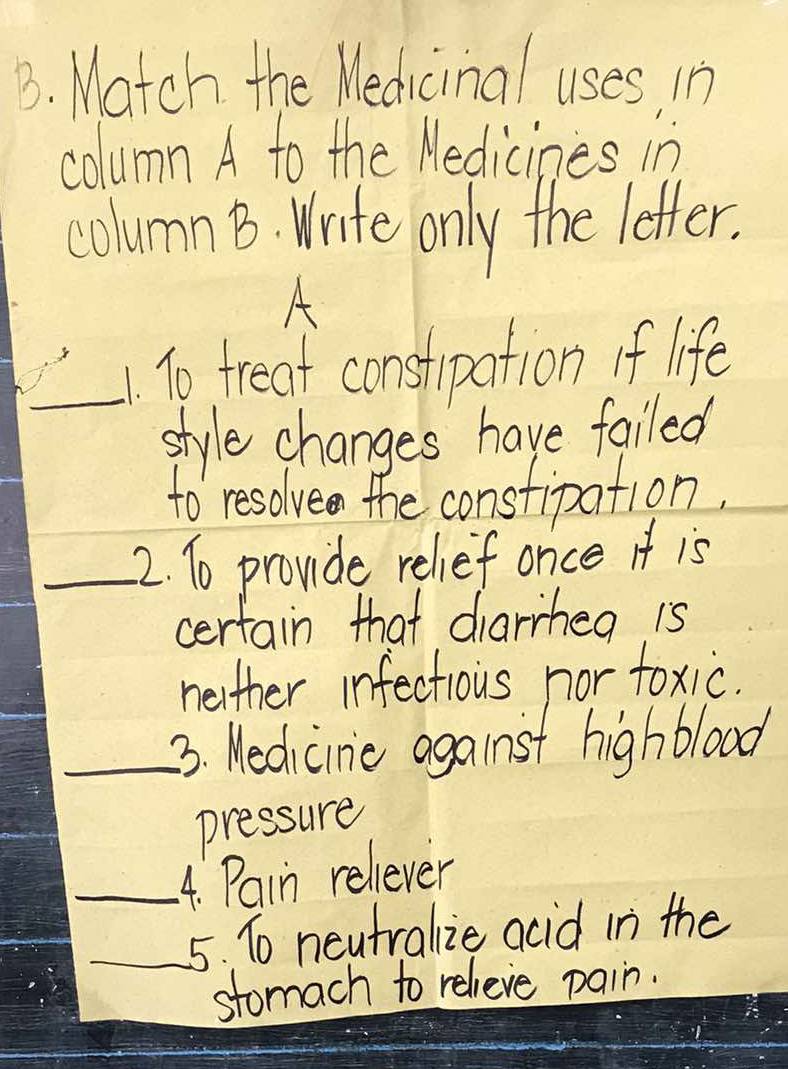 B. Match the Medicinal uses in
column A to the Medicines in
column B. Write only the letter.
A
___1. To treat constipation if life
style changes have failed
to resolve the constipation.
___2. To provide relief once it is
certain that diarrhea is
neither infectious nor toxic.
___3. Medicine against high blood
pressure
___4. Pain reliever
___5. To neutralize acid in the
stomach to relieve pain.